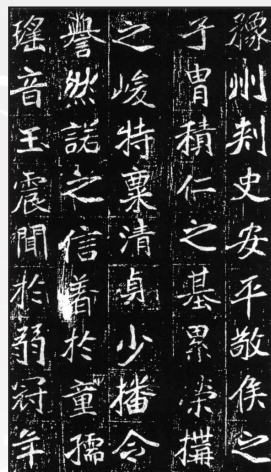 豫州刾史安平敬侯之
子胄積仁之基累荣構
之峻特稟清貞少播令
譽然諾之信著於童孺
瑤音玉震聞於弱冠年